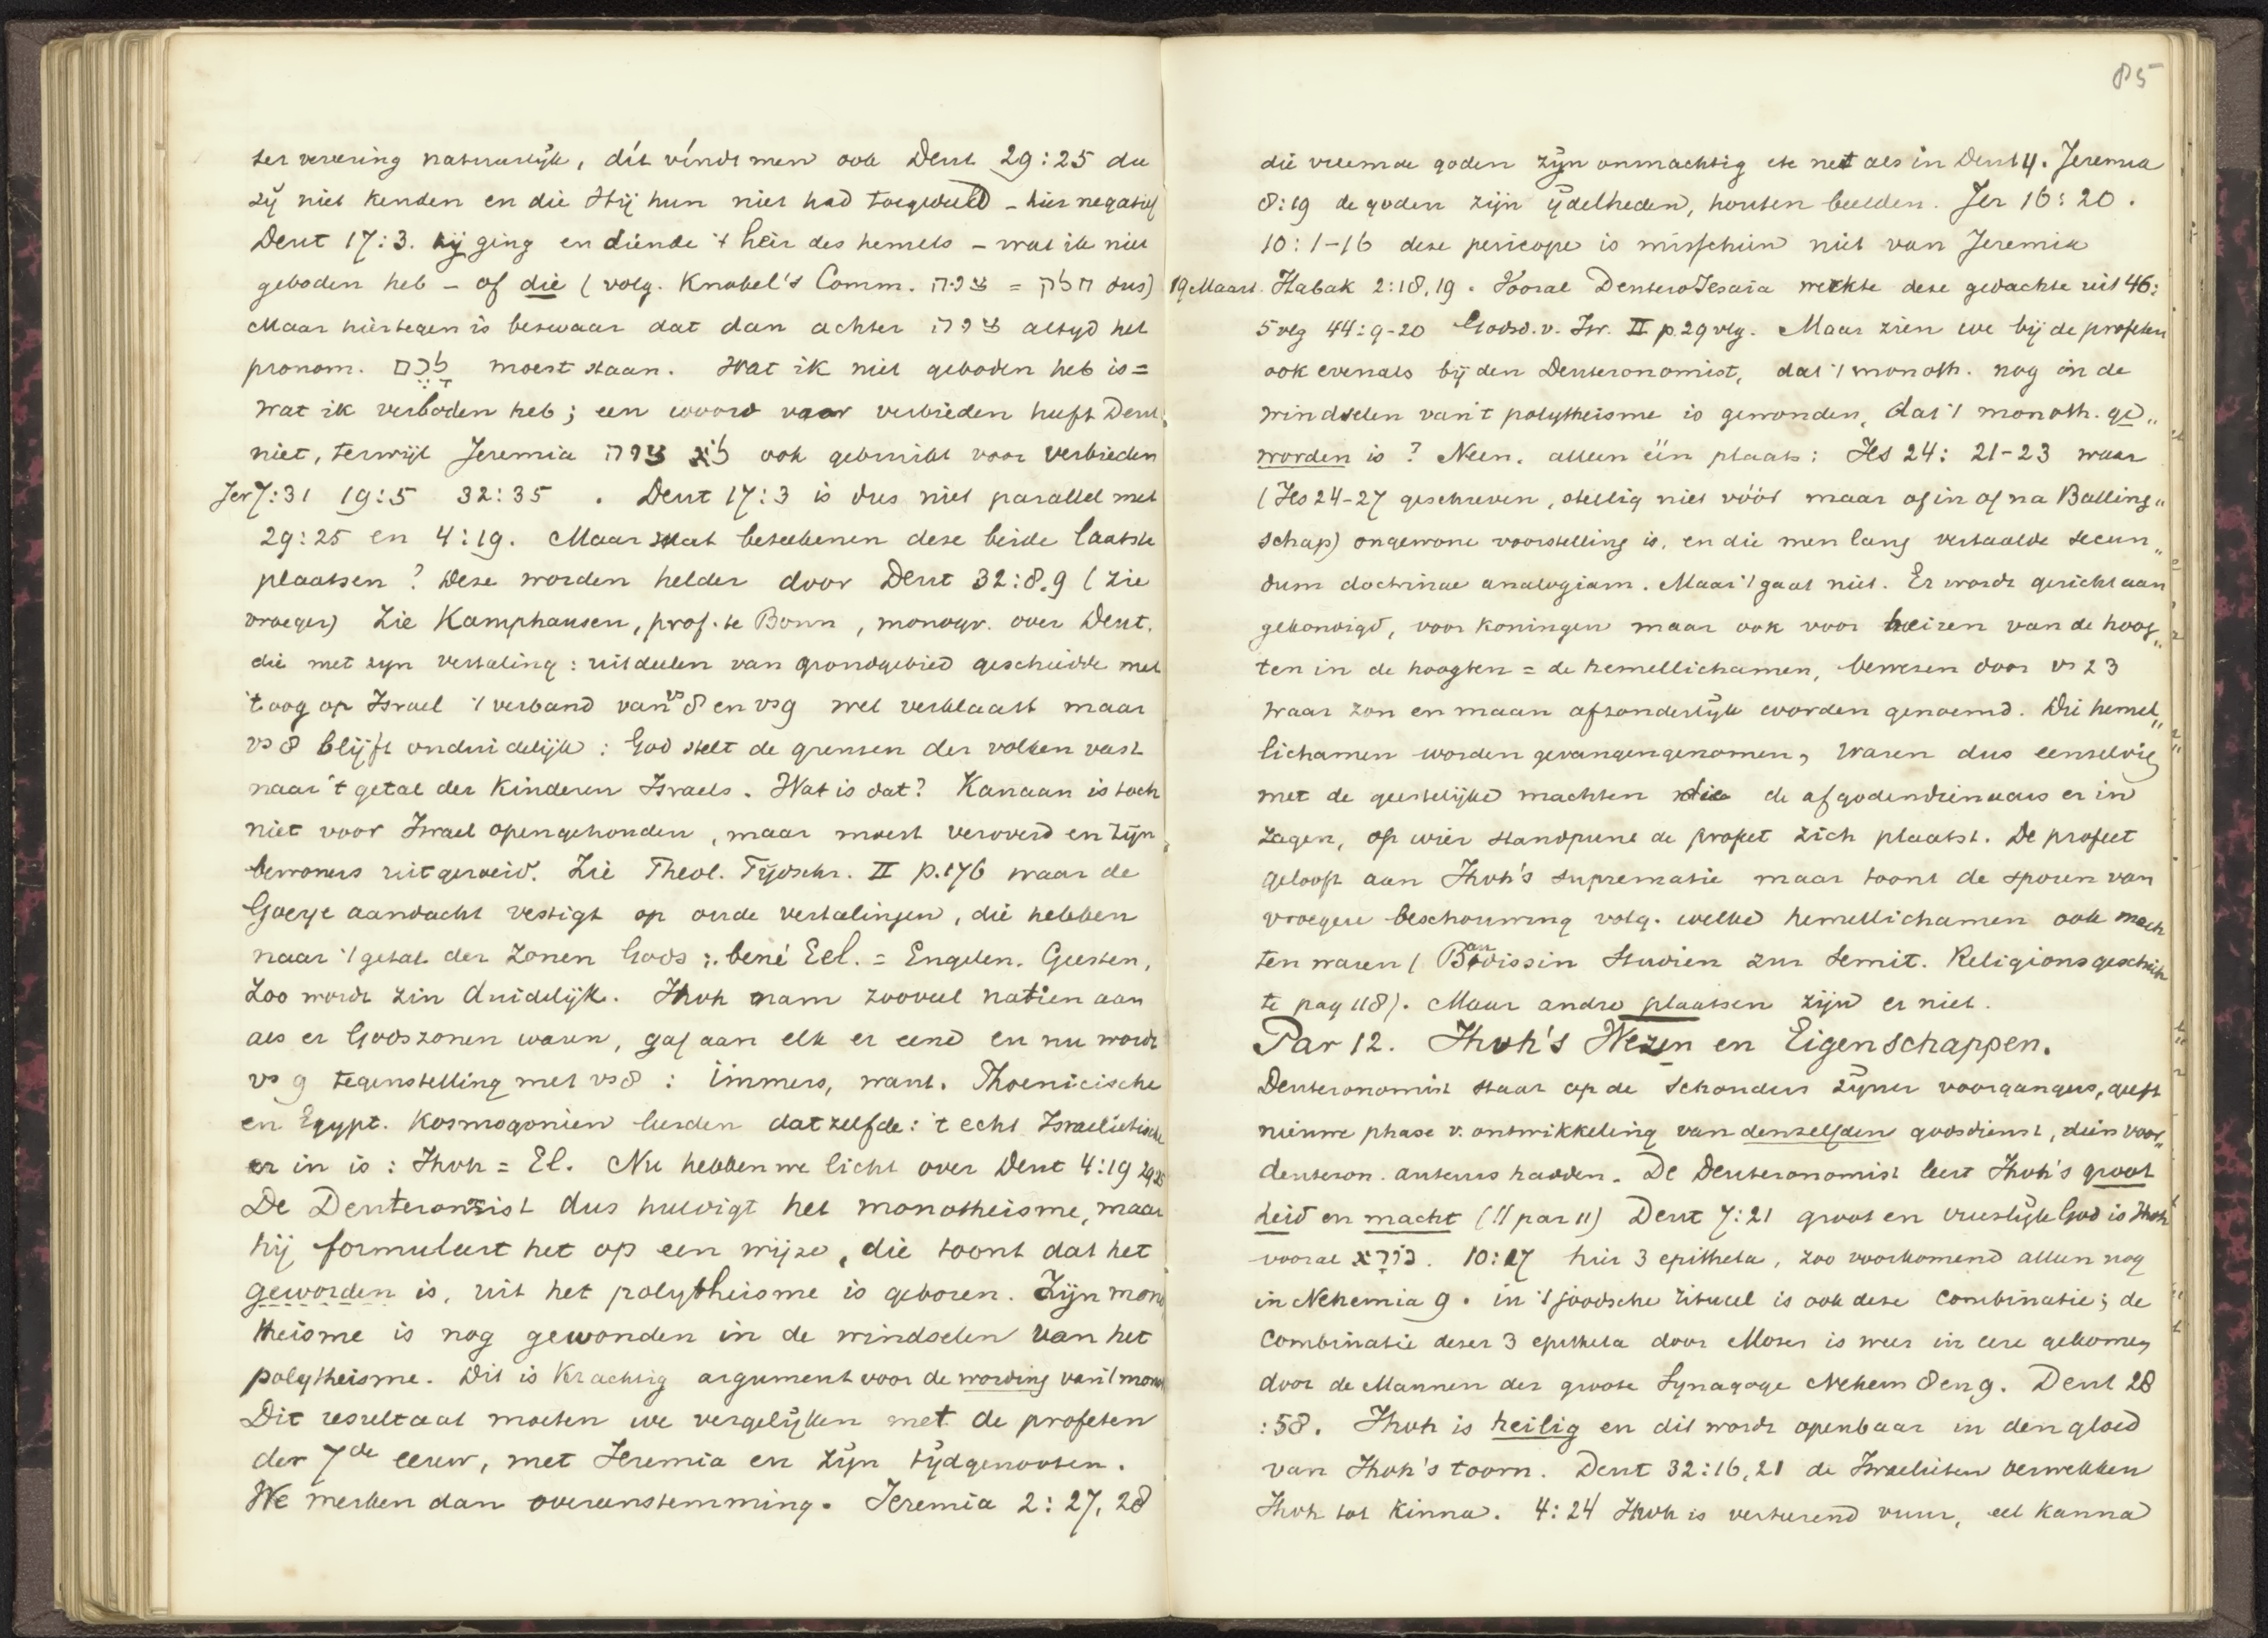 ter vereering natuurlijk, dít víndt men ook Deut 29:25 die
zij niet kenden en die Hij hun niet had toegedeeld – hier negatief
Deut 17:3. hij ging en diende 't heir des hemels – wat ik niet
geboden heb – of die (volg. Knobel's Comm. צוה = חלק dus)
Maar hiertegen is bezwaar dat dan achter צוה altijd het
pronom. לָכֶם moest staan. Wat ik niet geboden heb is =
wat ik verboden heb; een woord voor verbieden heeft Deut.
niet, terwijl Jeremia לֹא צוה ook gebruikt voor verbieden
Jer 7:31 19:5 32:35 . Deut 17:3 is dus niet parallel met
29:25 en 4:19. Maar wat beteekenen deze beide laatste
plaatsen? Deze worden helder door Deut 32:8.9 (zie
vroeger) Zie Kamphausen, prof. te Bonn, monogr. over Deut.
die met zijn vertaling: uitdeelen van grondgebied geschiedde met
't oog op Israel 't verband van vs 8 en vs 9 wel verklaart maar
vs 8 blijft onduidelijk: God stelt de grenzen der volken vast
naar 't getal der kinderen Israels. Wat is dat? Kanaan is toch
niet voor Israel opengehouden, maar moest veroverd en zijn
bewoners uitgeroeid. Zie Theol. Tijdschr. II p. 176 waar de
Goeje aandacht vestigt op oude vertalingen, die hebben
naar 't getal der zonen Gods: bené Eel. = Engelen. Geesten,
Zoo wordt zin duidelijk. Jhvh nam zooveel natiën aan
als er Godszonen waren, gaf aan elk er eene en nu wordt
vs 9 tegenstelling met vs 8: immers, want. Phoenicische
en Egypt. Kosmogonien leerden datzelfde: 't echt Israelietische
er in is: Jhvh = El. Nu hebben we licht over Deut 4:19 29:25
De Deuteronomist dus huldigt het monotheisme, maar
hij formuleert het op een wijze, die toont dat het
geworden is, uit het polytheisme is geboren. Zijn mono
theisme is nog gewonden in de windselen van het
polytheisme. Dit is krachtig argument voor de wording van 't monoth
Dit resultaat moeten we vergelijken met de profeten
der 7de eeuw, met Jeremia en zijn tijdgenooten.
We merken dan overeenstemming. Jeremia 2:27, 28
85
die vreemde goden zijn onmachtig etc net als in Deut 4. Jeremia
8:19 de goden zijn ijdelheden, houten beelden. Jer 16:20.
10:1–16 deze pericope is misschien niet van Jeremia
19 Maart. Habak 2:18,19. Vooral DeuteroJesaia werkte deze gedachte uit 46:
5 vlg 44:9-20 Godsd. v. Isr. II p. 29 vlg. Maar zien we bij de profeten
ook evenals bij den Deuteronomist, dat 't monoth. nog in de
windselen van 't polytheisme is gewonden, dat 't monoth. ge„
worden is? Neen. alleen één plaats: Jes 24: 21-23 waar
(Jes 24-27 geschreven, stellig niet vóór maar of in of na Balling„
schap) ongewone voorstelling is, en die men lang vertaalde secun„
dum doctrinae analogiam. Maar 't gaat niet. Er wordt gericht aan
gekondigd, voor koningen maar ook voor heiren van de hoog„
ten in de hoogten = de hemellichamen, bewezen door vs 23
waar zon en maan afzonderlijk worden genoemd. Die hemel„
lichamen worden gevangengenomen, waren dus eenzelvig
met de geestelijke machten die de afgodendienaars er in
zagen, op wier standpunt de profeet zich plaatst. De profeet
gelooft aan Jhvh's suprematie maar toont de sporen van
vroegere beschouwing volg. welke hemellichamen ook mach
ten waren (Baudissin Studien zur Semit. Religionsgeschich
te pag 118). Maar andre plaatsen zijn er niet.
Par 12. Jhvh's Wezen en Eigenschappen.
Deuteronomist staat op de schouders zijner voorgangers, geeft
nieuwe phase v. ontwikkeling van denzelfden godsdienst, dien voor„
deuteron. auteurs hadden. De Deuteronomist leert Jhvh's groot
heid en macht (II par 11) Deut 7:21 groot en vreeslijk God is Jhvh
vooral נורָא. 10:17 hier 3 epitheta, zoo voorkomend alleen nog
in Nehemia 9. in 't joodsche ritueel is ook deze combinatie; de
combinatie dezer 3 epitheta door Mozes is weer in eere gekomen
door de Mannen der groote Synagoge Nehem 8 en 9. Deut 28
:58. Jhvh is heilig en dit wordt openbaar in den gloed
van Jhvh's toorn. Deut 32:16,21 de Israelieten verwekken
Jhvh tot kinna. 4:24 Jhvh is verterend vuur, eel kanna